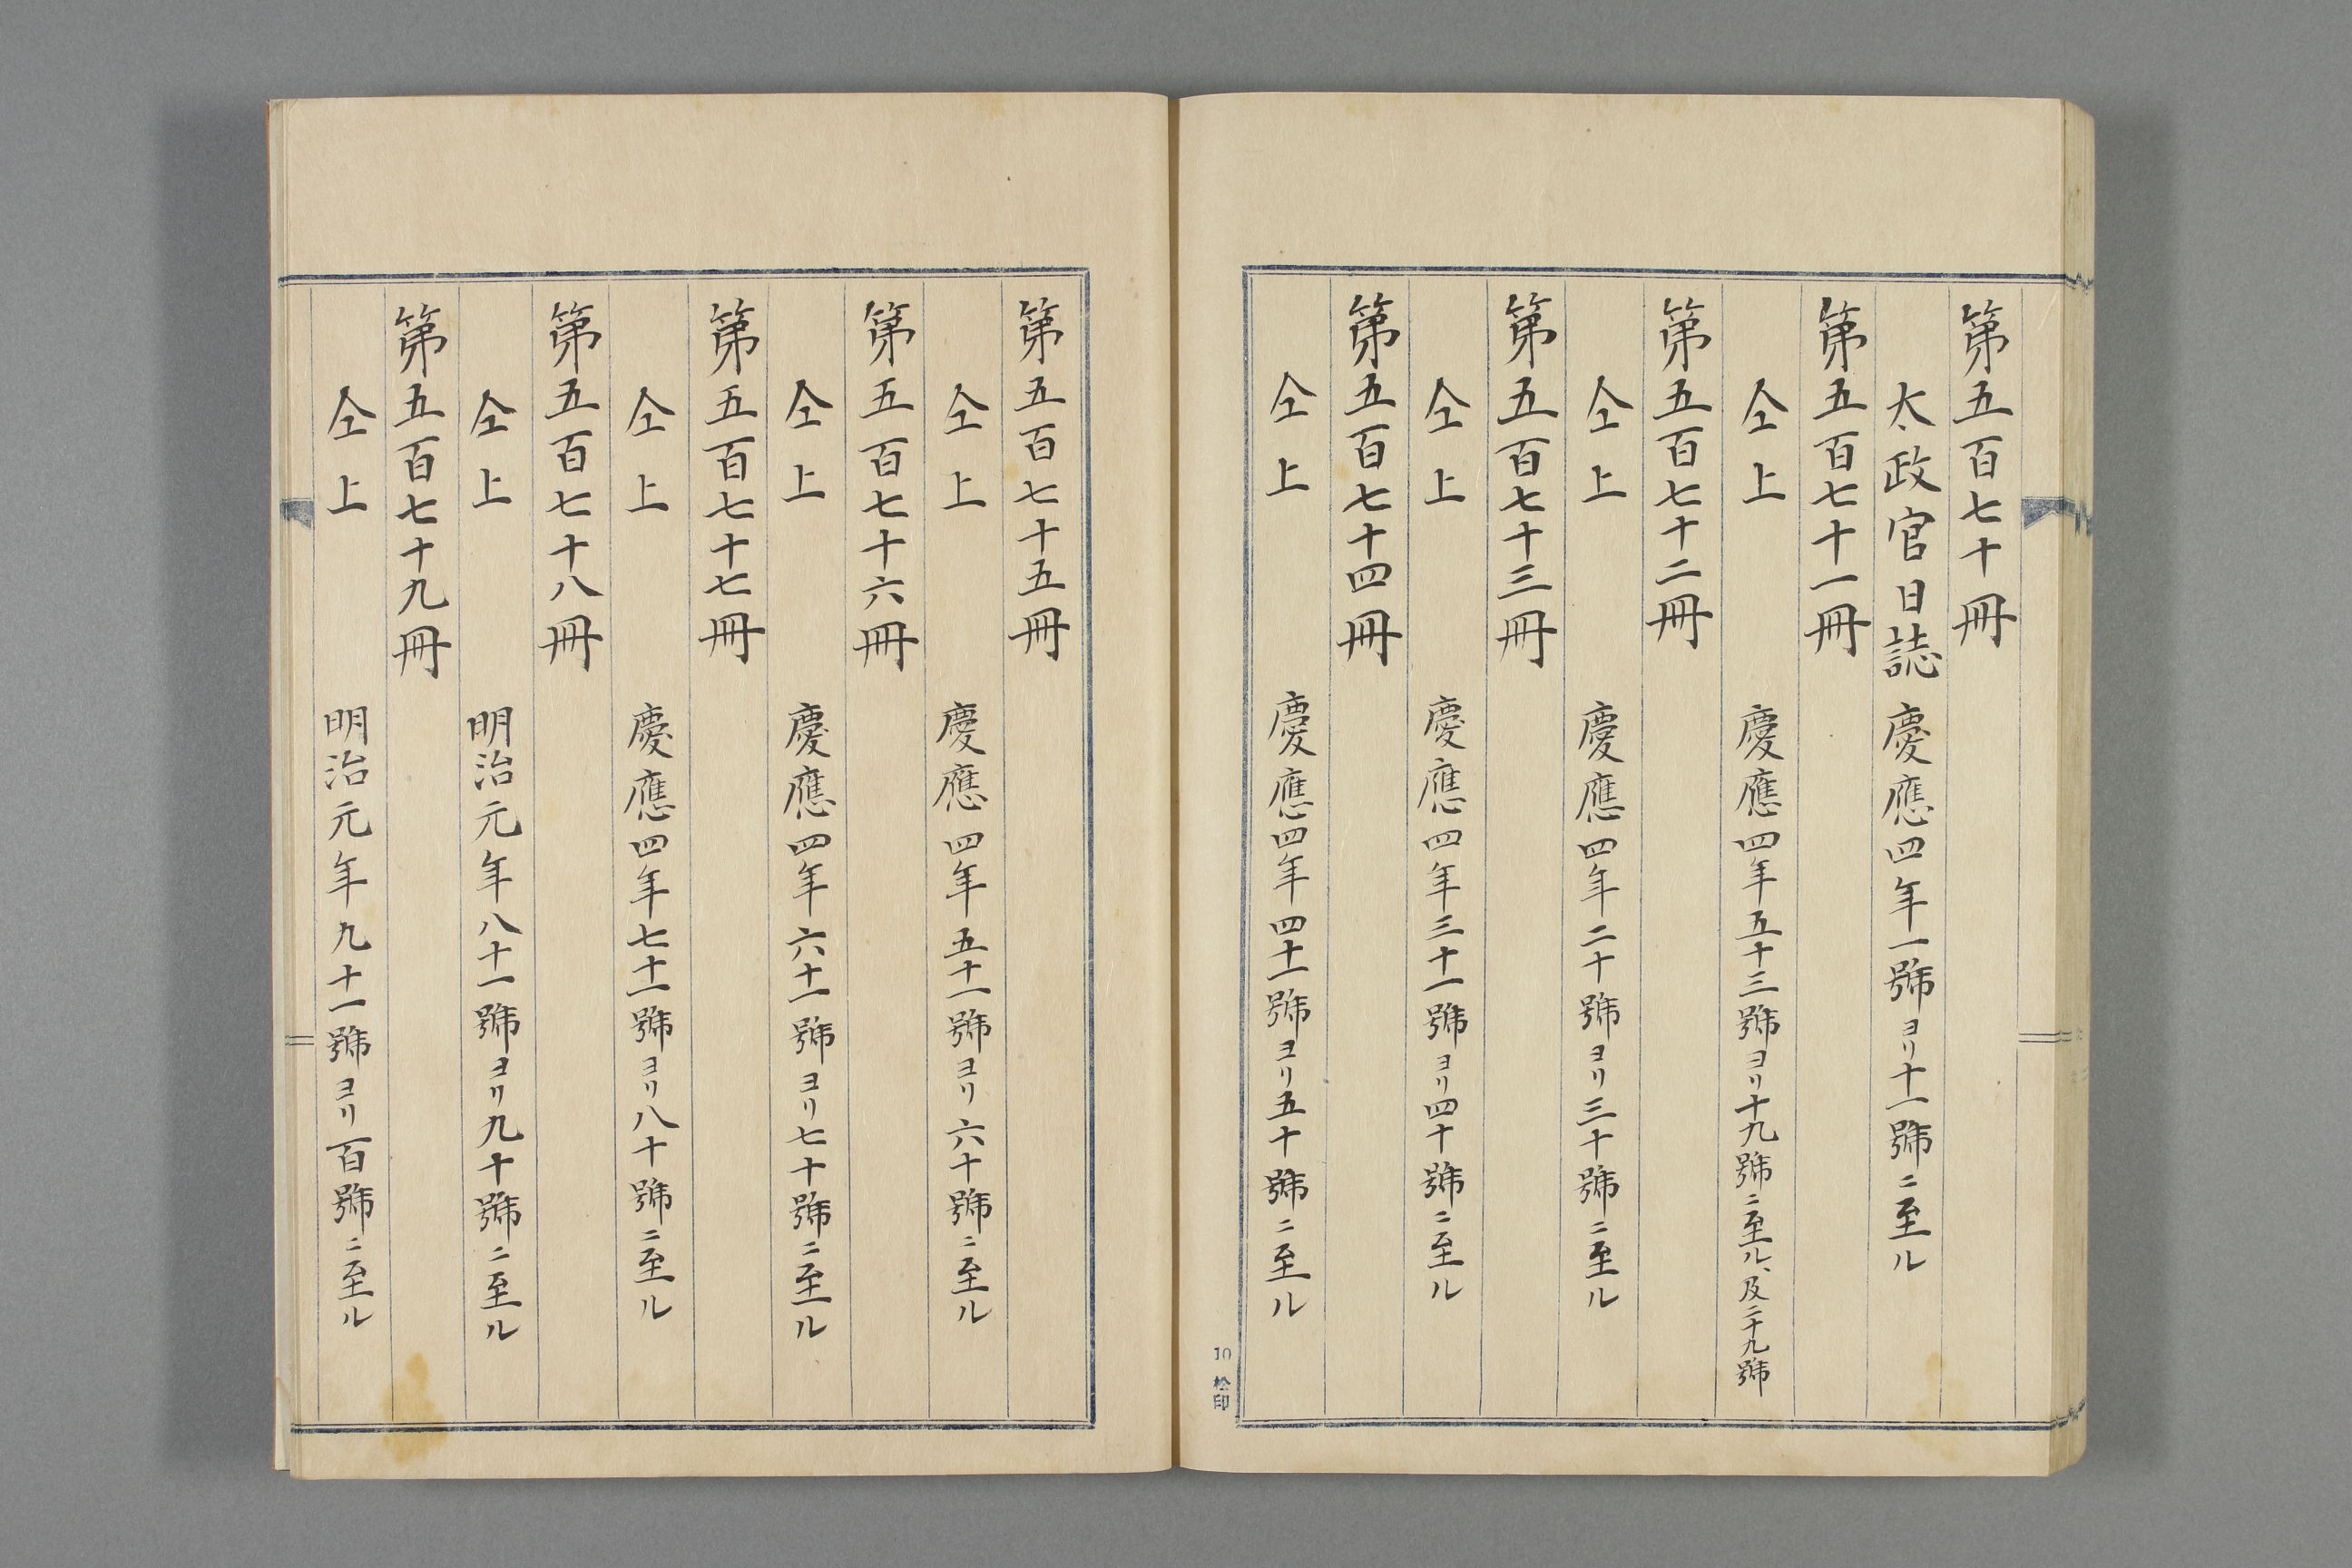 第五百七十冊
太政官日誌 慶應四年一號ヨリ十一號ニ至ル
第五百七十一冊
仝上 慶應四年五十三號ヨリ十九號ニ至ル、及二十九號
第五百七十二冊
仝上 慶應四年二十號ヨリ三十號ニ至ル
第五百七十三冊
仝上 慶應四年三十一號ヨリ四十號ニ至ル
第五百七十四冊
仝上 慶應四年四十一號ヨリ五十號ニ至ル
10 松印
第五百七十五冊
仝上 慶應四年五十一號ヨリ六十號ニ至ル
第五百七十六冊
仝上 慶應四年六十一號ヨリ七十號ニ至ル
第五百七十七冊
仝上 慶應四年七十一號ヨリ八十號ニ至ル
第五百七十八冊
仝上 明治元年八十一號ヨリ九十號ニ至ル
第五百七十九冊
仝上 明治元年九十一號ヨリ百號ニ至ル